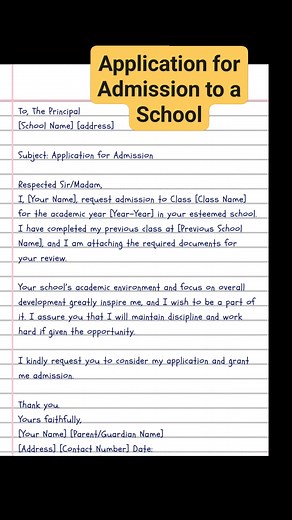 Application for
Admission to a
School
To, The Principal
[School Name] [address]
Subject: Application for Admission
Respected Sir/Madam,
I, [Your Name], request admission to Class [Class Name]
for the academic year [Year-Year] in your esteemed school.
I have completed my previous class at [Previous School
Name], and I am attaching the required documents for
your review.
Your school's academic environment and focus on overall
development greatly inspire me, and I wish to be a part of
it. I assure you that I will maintain discipline and work
hard if given the opportunity.
I kindly request you to consider my application and grant
me admission.
Thank you.
Yours faithfully,
[Your Name] [Parent/Guardian Name]
[Address] [Contact Number] Date: